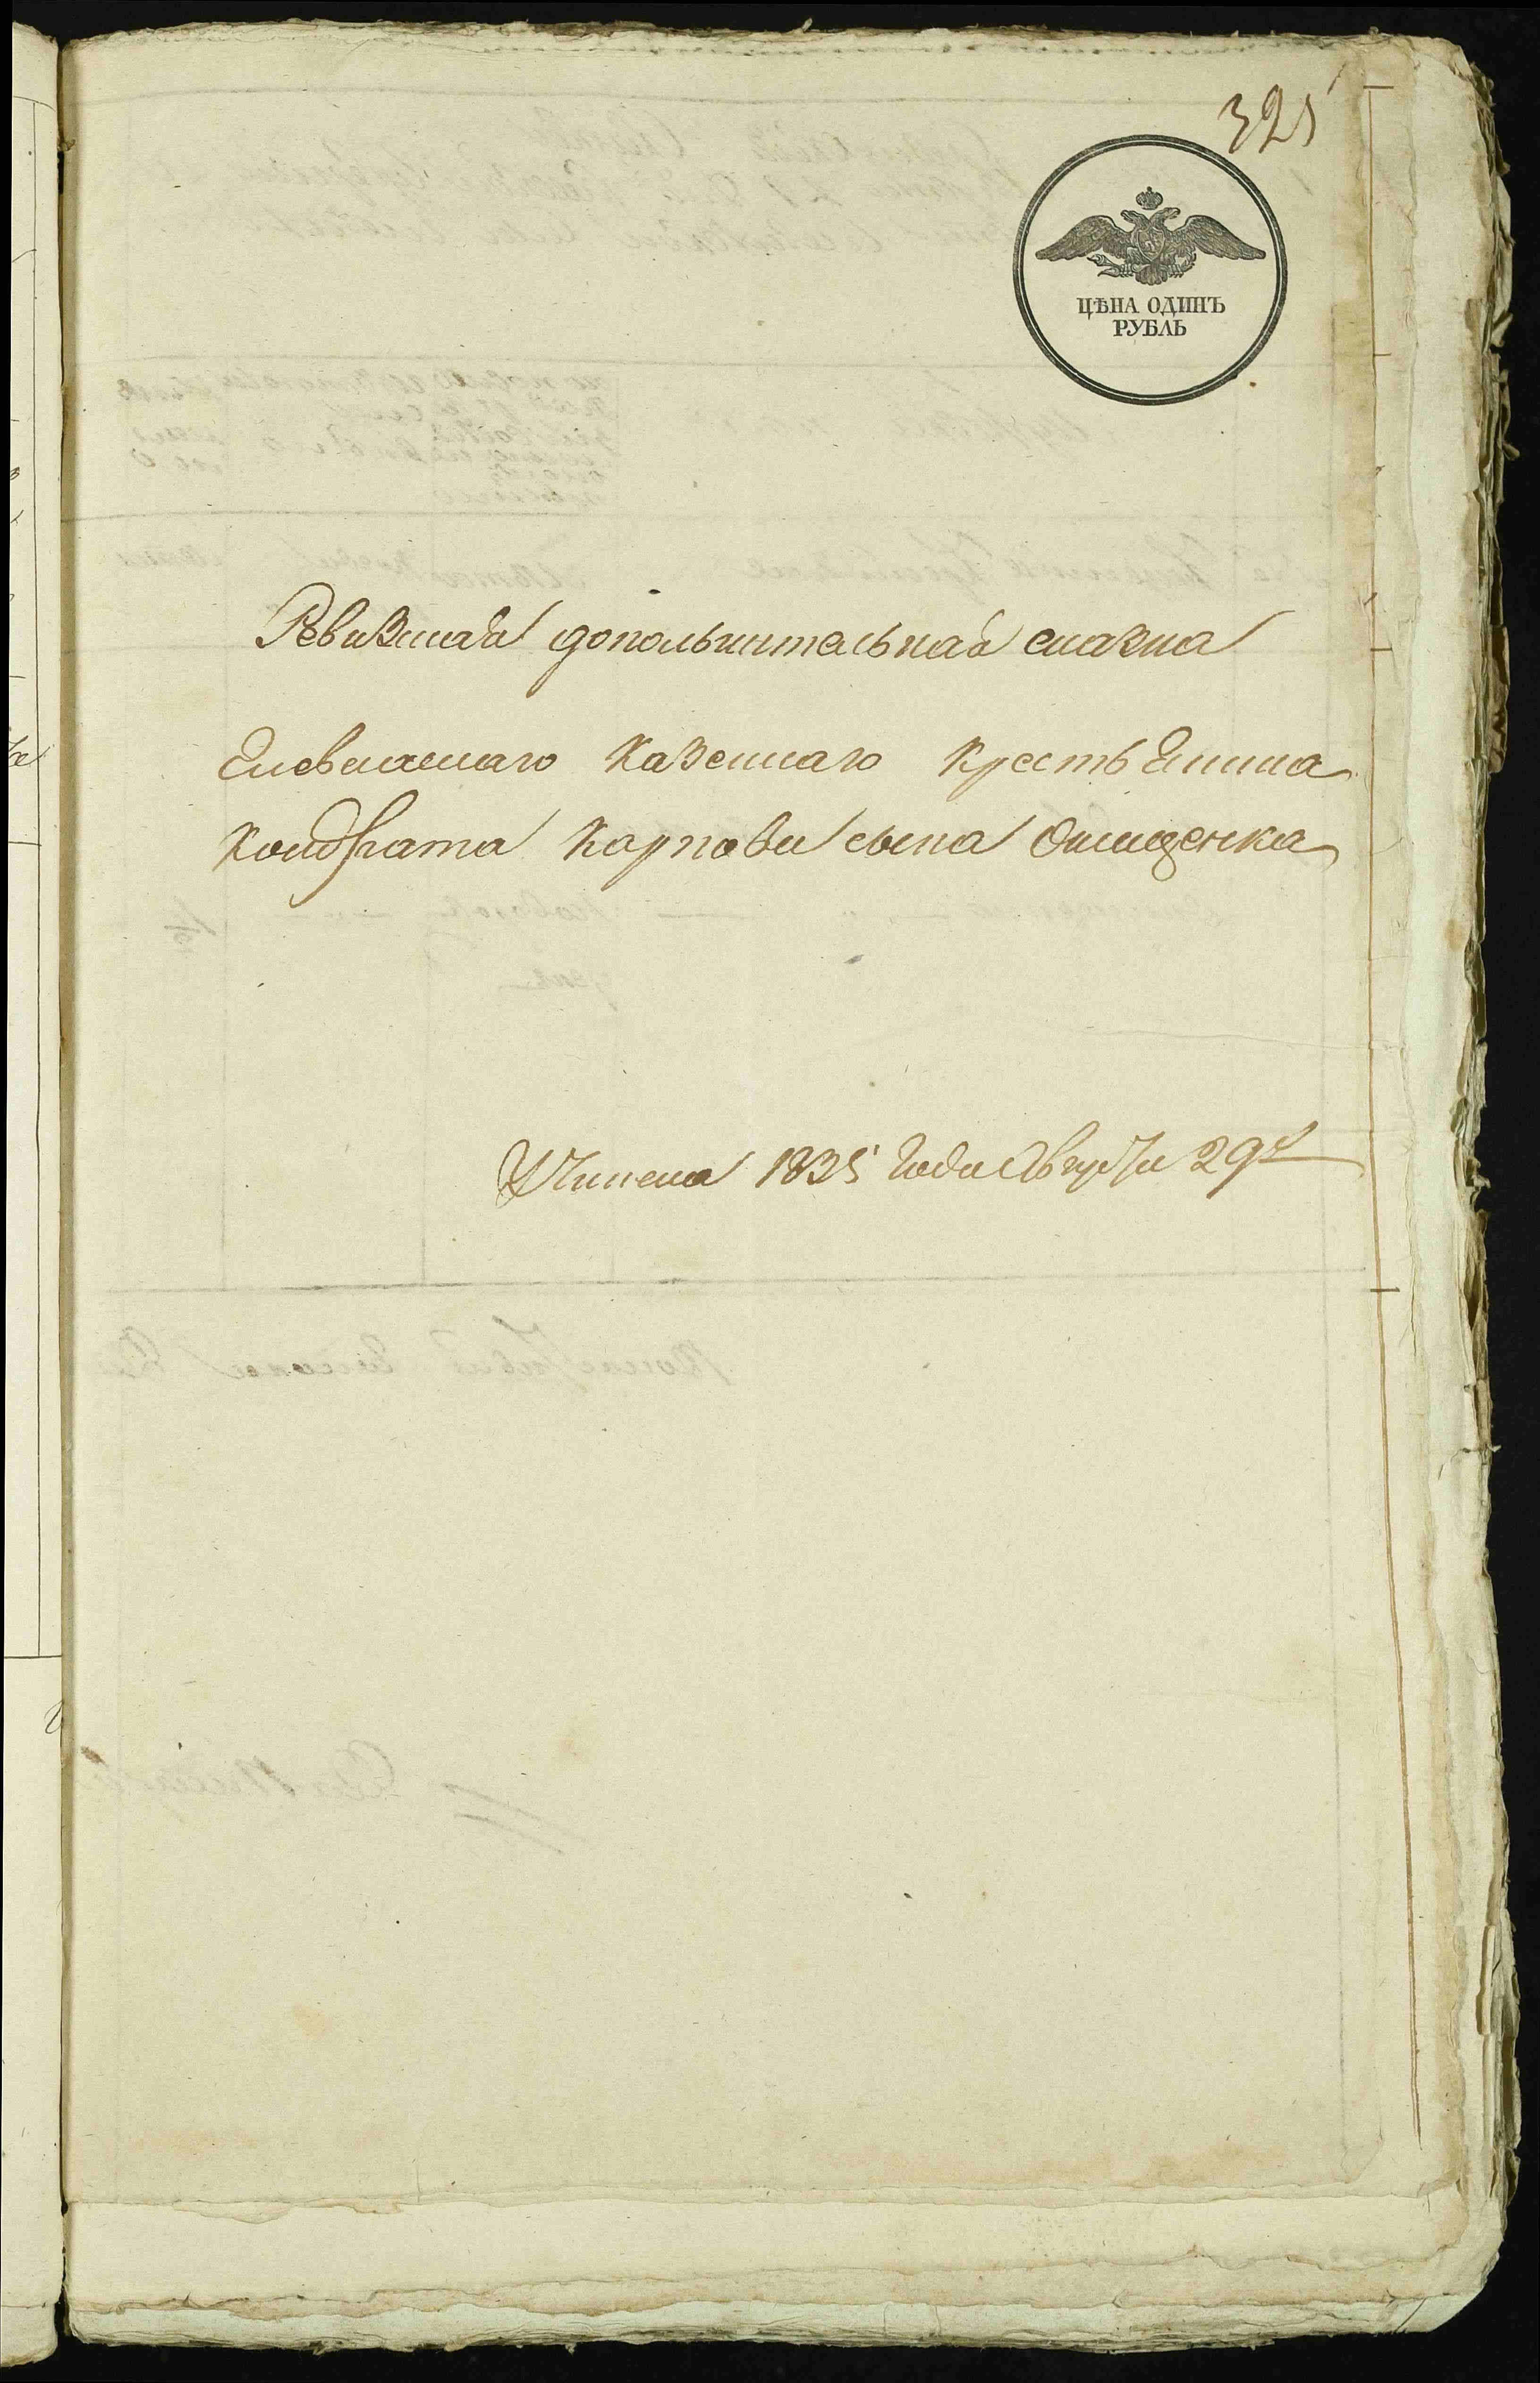 325
ЦѢНА ОДИНЪ
РУБЛЬ
Ревизская дополнительная сказка
казеннаго крестьянина
Кондрата Карпова сына Онищенка
Учинена 1835 года Августа 29